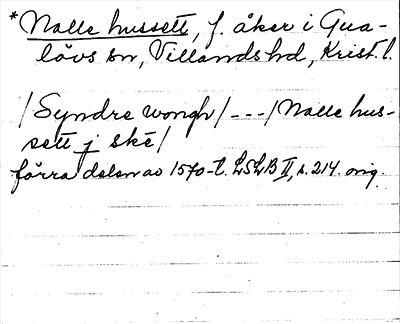 *Nalle hussett, f. åker i Gua-
lövs sn, Villands hd, Krist. l.
/Syndre wongh/ --- /Nalle hus-
sett j ske/
förra delen av 1570-t. LSLB II, s. 214. orig.